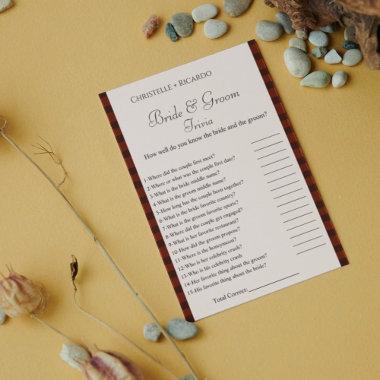 Christelle + Ricardo
Bride & Groom
Trivia
How well do you know the bride and the groom?
1-Where did the couple first meet?
2-Where or what was the couple first date?
3-What is the bride middle name?
4-What is the groom middle name?
5-How long has the couple been together?
6-What is the bride favorite country?
7-What is the groom favorite sports?
8-Where did the couple get engaged?
9-What is her favorite restaurant?
10-How did the groom propose?
11-Where is the honeymoon?
12-Who is her celebrity crush
13-Who is his celebrity crush
14-Her favorite thing about the groom?
15-His favorite thing about the bride?
Total Correct: